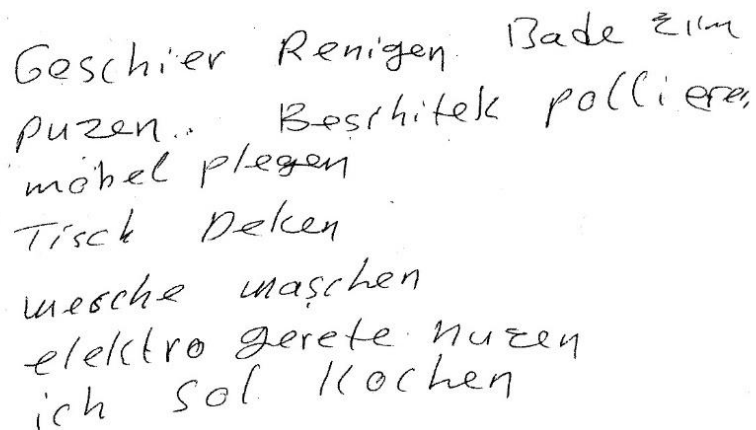 Geschier Renigen Bade Zim
puzen.. Beschitek pollieren
möbel plegen
Tisck Deken
wesche waschen
elektro gerete nuzen
ich sol kochen